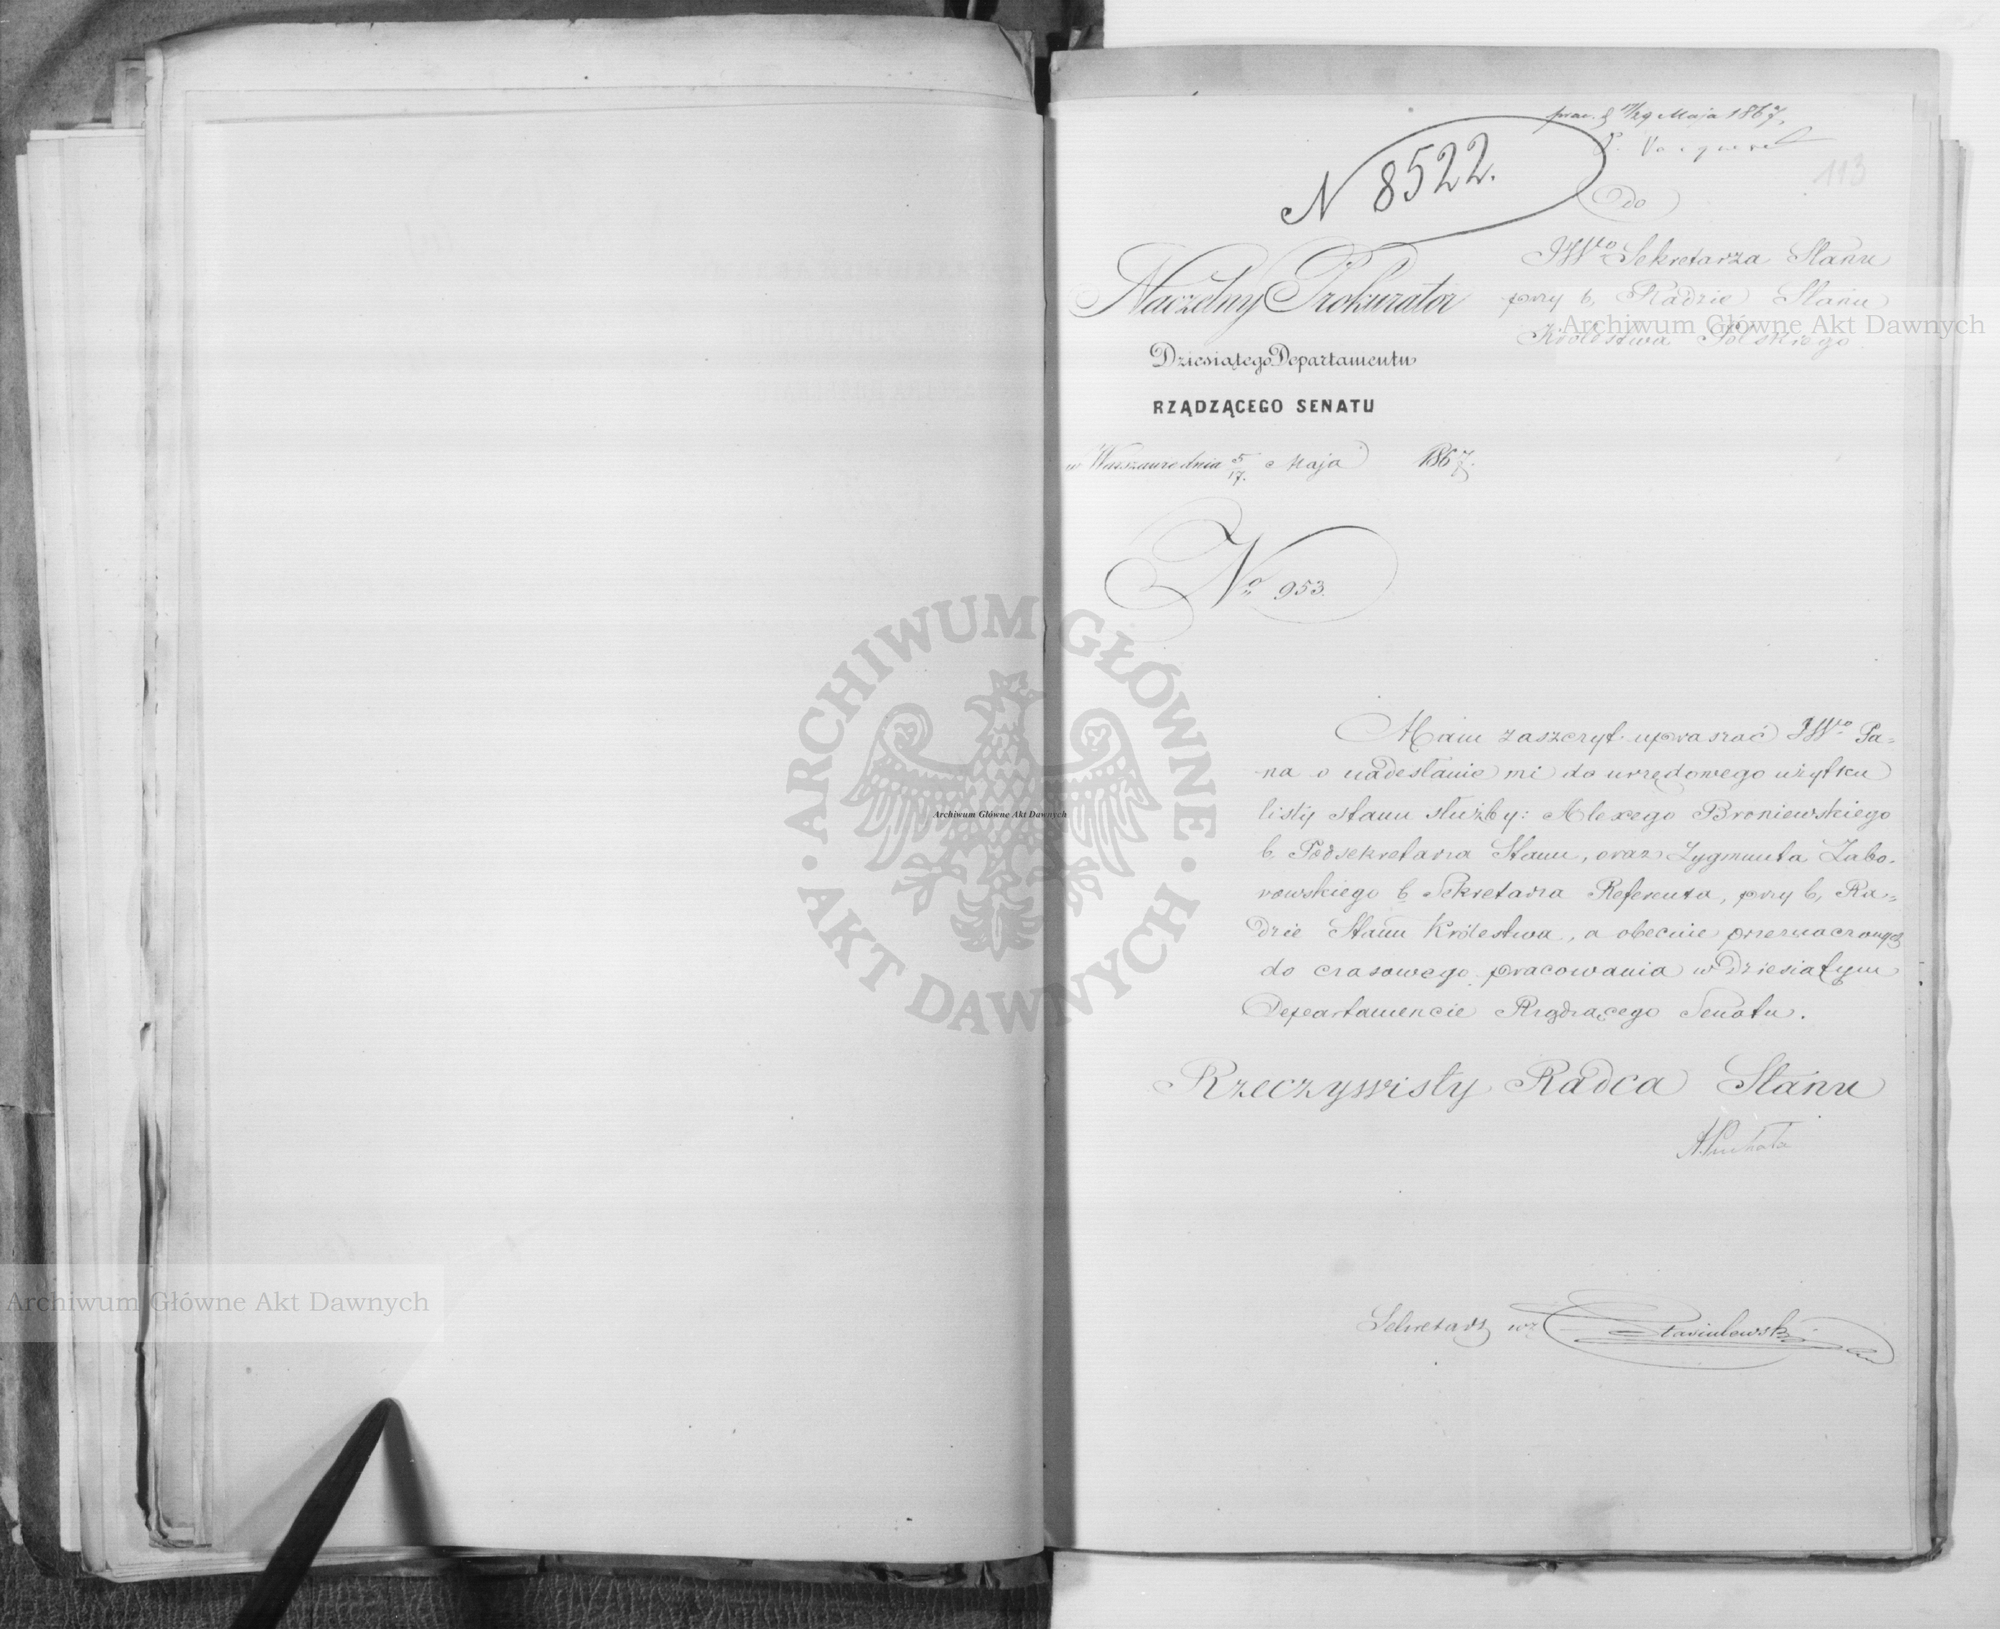 17/29 Maja 1867.
N 8522.
113
Do
JWgo Sekretarza Stanu
przy b. Radzie Stanu
Królestwa Polskiego
Naczelny Prokurator
Dziesiątego Departamentu
RZĄDZĄCEGO SENATU
w Warszawie dnia 5/17. Maja 1867.
No 953.
Mam zaszczyt upraszać JWgo Pa-
na o nadesłanie mi do urzędowego użytku
listy stanu służby: Alexego Broniewskiego
b. Podsekretarza Stanu, oraz Zygmunta Zabo-
rowskiego b. Sekretarza Referenta, przy b. Ra-
dzie Stanu Królestwa, a obecnie przeznaczonych
do czasowego pracowania w Dziesiątym
Departamencie Rządzącego Senatu.
Rzeczywisty Radca Stanu
Sekretarz wz
Archiwum Główne Akt Dawnych
ARCHIWUM GŁÓWNE · AKT DAWNYCH ·
Archiwum Główne Akt Dawnych
Archiwum Główne Akt Dawnych